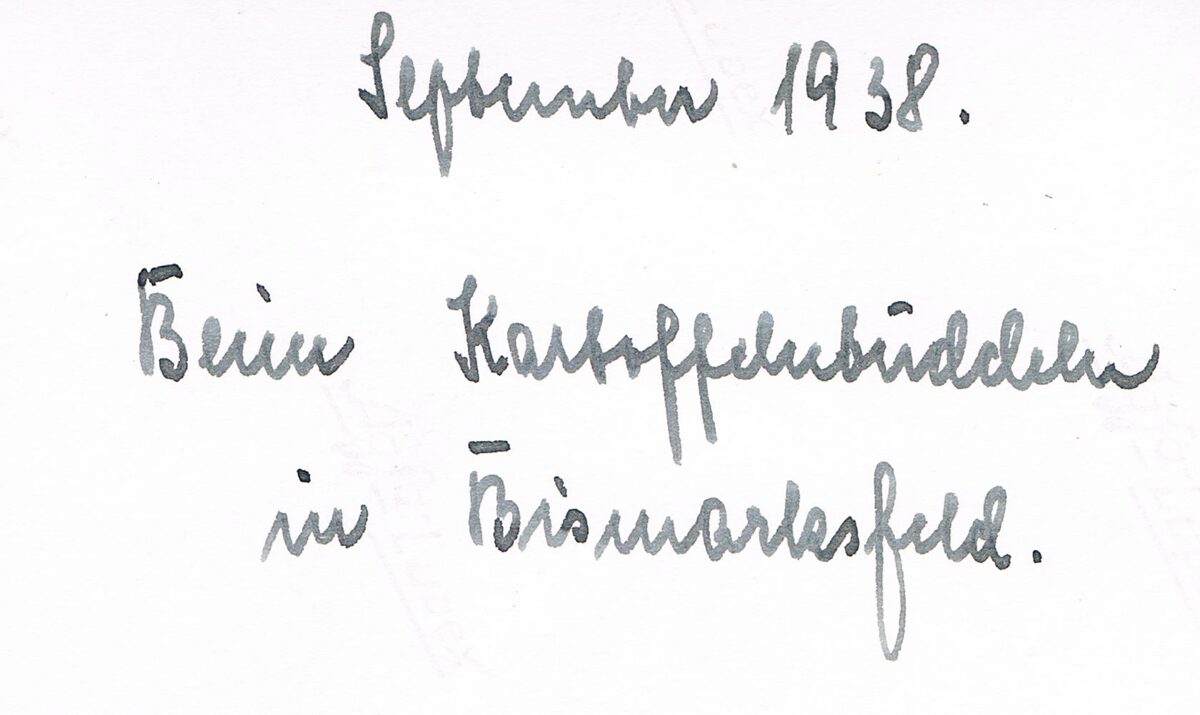 September 1938.
Beim Kartoffelnbuddeln
in Bismarksfeld.